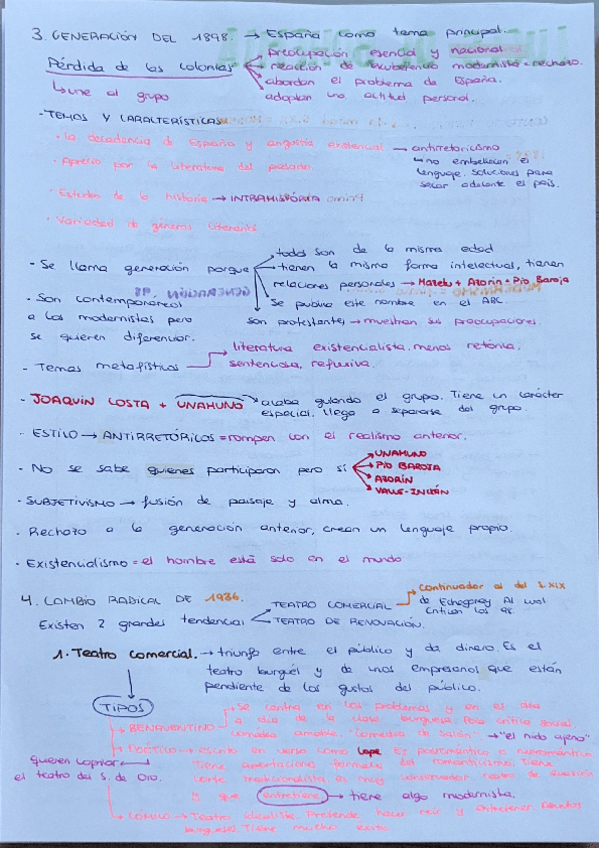 3. GENERACIÓN DEL 1898. → España como tema principal.
Pérdida de las colonias
preocupación esencial y nacional
reacción de modernista = rechazo.
abordan el problema de España.
adoptan una actitud personal.
↳ une al grupo
- TEMAS Y CARACTERÍSTICAS
· La decadencia de España y angustia existencial → antirretoricismo
↳ no embellecen el lenguaje. Soluciones para sacar adelante el país.
· Aprecio por la literatura del pasado.
· Estudian de la historia → INTRAHISTORIA
· Variedad de géneros literarios
- Se llama generación porque
todos son de la misma edad
tienen la misma forma intelectual, tienen
relaciones personales → Maeztu + Azorín + Pío Baroja
Se publica este nombre en el ABC.
son protestantes → muestran sus preocupaciones.
- Son contemporáneos
a los modernistas pero
se quieren diferenciar.
- Temas metafísticos → literatura existencialista, menos retórica.
sentenciosa, reflexiva.
- JOAQUÍN COSTA + UNAMUNO → acaba guiando el grupo. Tiene un carácter
especial. Llega a separarse del grupo.
· ESTILO → ANTIRRETÓRICOS = rompen con el realismo anterior.
· No se sabe quienes participaron pero sí
UNAMUNO
PÍO BAROJA
AZORÍN
VALLE-INCLÁN
· SUBJETIVISMO → fusión de paisaje y alma.
· Rechazo a la generación anterior, crean un lenguaje propio.
· Existencialismo = el hombre está solo en el mundo
4. CAMBIO RADICAL DE 1936.
Existen 2 grandes tendencias
TEATRO COMERCIAL → continuador al del S.XIX
de Echegaray Al cual
critican los
TEATRO DE RENOVACIÓN.
1. Teatro comercial. → triunfo entre el público y da dinero. Es el
teatro burgués y de unos empresarios que están
pendiente de los gustos del público.
TIPOS
→ BENAVENTINO → Se centra en los problemas y en es día
a día de la clase burguesa. Poca crítica social
comedia amable. "Comedia de salón" → "el nido ajeno"
→ POÉTICO → escrito en verso como Lope
Tiene aportaciones formales del romanticismo. Tiene
verso tradicionalista es muy conservador. teatro de evasión
Y que entretiene → tiene algo modernista.
Quieren copiar
el teatro del S. de Oro.
→ CÓMICO → Teatro idealista. Pretende hacer reír y entretener.
burgueses. Tiene mucho éxito